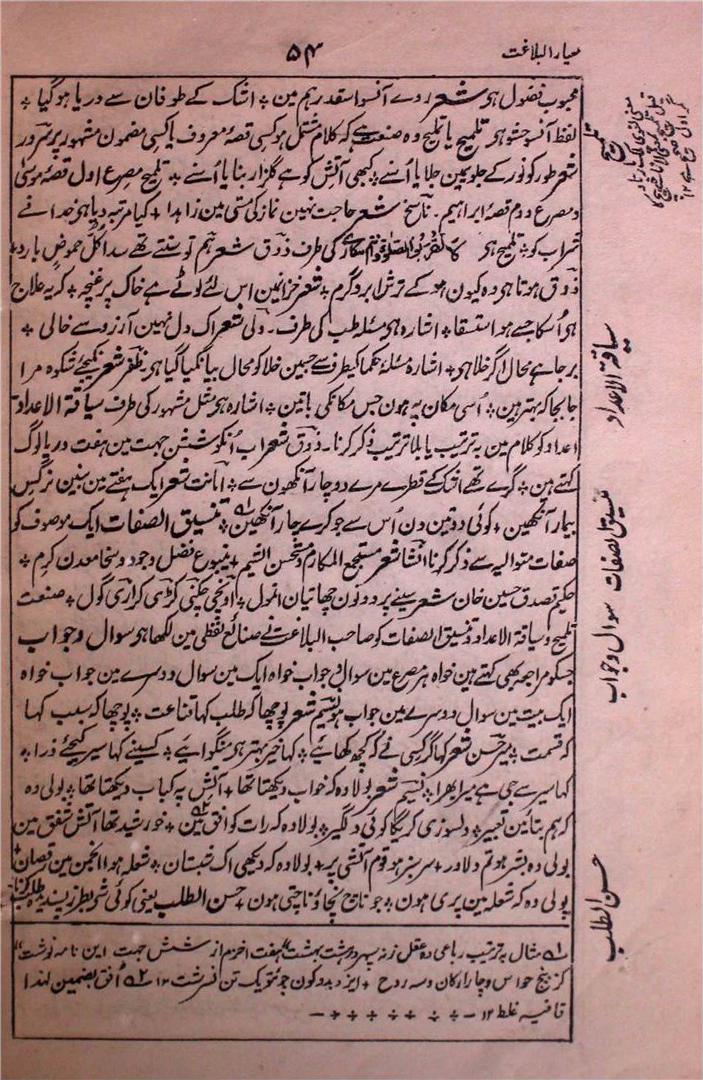 معیار البلاغت
۵۴
محبوب فضول ہو شعر روے آنسو اسقدر ہم مین ٭ اشک کے طوفان سے دریا ہو گیا ٭
لفظ آنسو حشو ہو تلمیح یا تملیح وہ صنعت ہے کہ کلام مشتمل ہو کسی قصۂ معروف یا کسی مضمون مشہور پر سرور
شعر طور کو نور کے جلوہین جلایا اُسنے ٭ کبھی آتش کو ہے گلزار بنایا اُسنے ٭ تلمیح مصرع اول قصۂ موسیٰ
و مصرع دوم قصۂ ابراہیم۔ ناسخ شعر حاجت نہین نماز کی مستی مین زاہدا ٭ کیا مرتبہ دیا ہی خدا نے
شراب کو ٭ تلمیح ہی کی طرف ذوق شعر ہم تو سنتے تھے سدا کل حموض بارد ٭
ذوق ہوتا ہی وہ کیون ہو کے ترش ابرو گرم ٭ شعر خزائین اس لئے لوٹے ہے خاک پر غنچہ ٭ کہ یہ علاج
ہی اُسکا جسے ہو استسقا ٭ اشارہ ہی مسئلہ طب کی طرف۔ ولی شعر اک دل نہین آرزو سے خالی ٭
برجا ہے محال اگر خلا ہی ٭ اشارہ مسئلۂ حکما کیطرف ہے جسین خلا کو محال بیانکیا گیا ہی ظفر شعر کیجئے شکوہ مرا
جابجا کہ بہتر ہین ٭ اُسی مکان پہ ہون جس مکانکی باتین ٭ اشارہ ہو مثل مشہور کی طرف سیاقۃ الاعداد
اعداد کو کلام مین بہ ترتیب یا بلا ترتیب ذکر کرنا۔ ذوق شعر اب اُنکو شش جہت مین ہفت دریا لوگ
کہتے ہین ٭ گرے تھے اشک کے قطرے مرے دو چار آنکھون سے ٭ امانت شعر ایک ہفتے مین بنین نرگس
بیمار آنکھین ٭ کوئی دو تین دن اُس سے جو کرے چار آنکھین ٭ تنسیق الصفات ایک موصوف کو
صفات متوالیہ سے ذکر کرنا انشا شعر مستجمع المکارم و مستحسن الشیم ٭ ینبوع فضل وجود و سخا معدن کرم ٭
حکیم تصدق حسین خان شعر سینے پر دونون چھاتیان انمول ٭ اونچی چکنی کڑی کراری گول ٭ صنعت
تلمیح و سیاقۃ الاعداد و تنسیق الصفات کو صاحب البلاغت نے صنائع لفظی مین لکھا ہو سوال و جواب
جسکو مراجعہ بھی کہتے ہین خواہ ہر مصرع مین سوال و جواب خواہ ایک مین سوال دوسرے مین جواب خواہ
ایک بیت مین سوال دوسرے مین جواب ہو نسیم شعر پوچھا کہ طلب کہا قناعت ٭ پوچھا کہ سبب کہا
کہ قسمت ٭ میر حسن شعر کہا گر کسی نے کہ کچھ کھائیے ٭ کہا خیر بہتر ہی منگوائیے ٭ کسینے کہا سیر کیجئے ذرا ٭
کہا سیر سے جی ہے میرا بھرا ٭ نسیم شعر بولا وہ کہ خواب دیکھتا تھا ٭ آتش پہ کباب دیکھتا تھا ٭ بولی وہ
کہ ہم بتائین تعبیر ٭ دلسوزی کریگا کوئی دلگیر ٭ بولا وہ کہ رات کو افق مین ٭ خورشید تھا آتش شفق مین ٭
بولی وہ بشر ہو تم دلاور ٭ سرسبز ہو قوم آتشی پر ٭ بولا وہ کہ دیکھی اک شبستان ٭ شعلہ ہوا انجمن مین رقصان ٭
بولی وہ کہ شعلہ مین پری ہون ٭ جو ناچ نچاؤ ناچتی ہون ٭ حسن الطلب یعنی کوئی شو بطرز پسندیدہ طلب کرنا
۱ مثال بہ ترتیب رباعی دہ عقل ز نہ سپہر و ز ہشت بہشت ٭ ہفت اخترم از شش جہت این نامہ نوشت ٭
کز پنج حواس و چار ارکان و سہ روح ٭ ایزد بدو کون جو تو یک تن نسرشت ۱۲ ۲ اُفق بضمین لہذا
قافیہ غلط ۱۲
تلمیح
سیاقۃ الاعداد
تنسیق الصفات
سوال و جواب
حسن الطلب